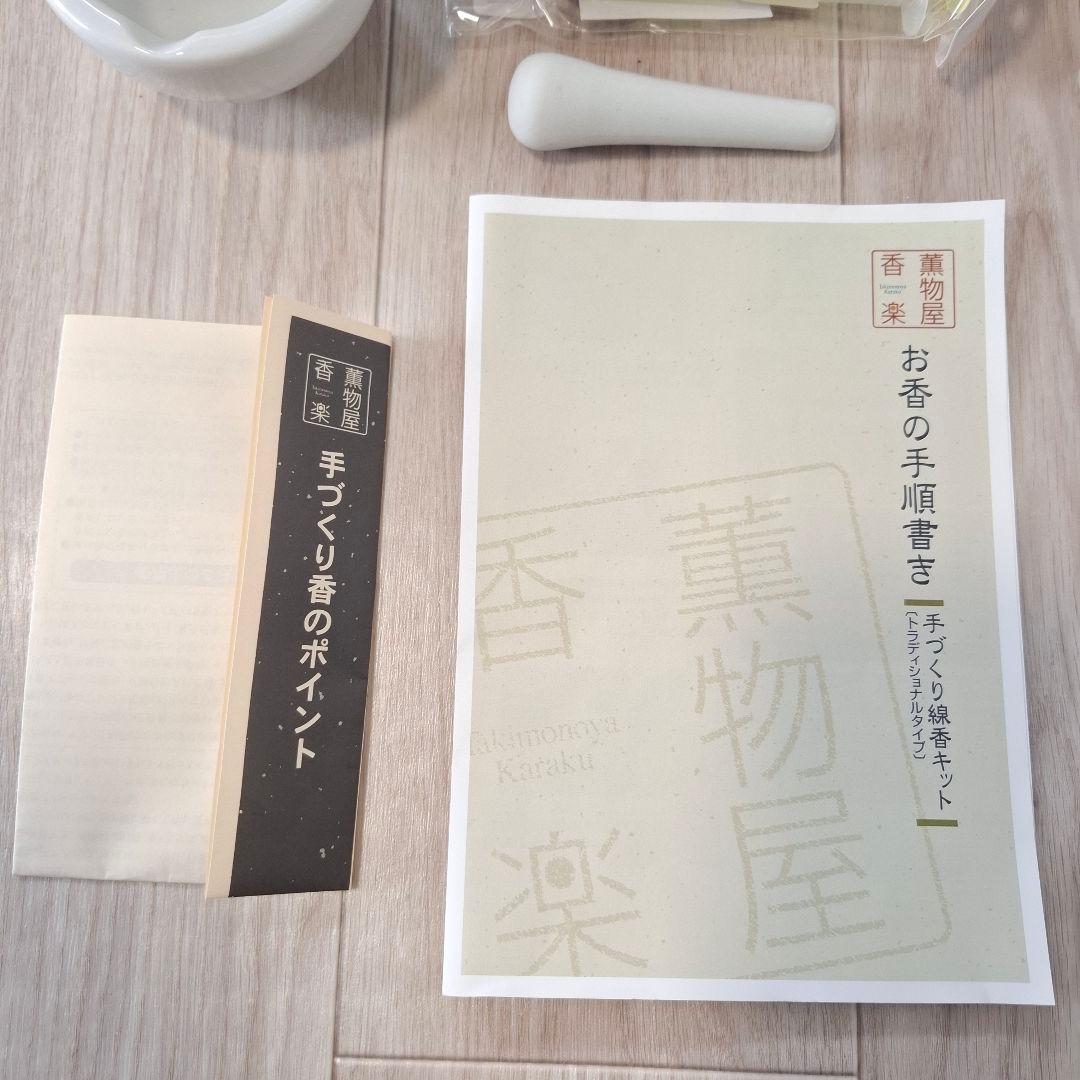 薫物屋
香楽
Takimonoya
Karaku
手づくり香のポイント
薫物屋
香楽
Takimonoya
Karaku
お香の手順書き
手づくり線香キット
〔トラディショナルタイプ〕
薫物屋
香楽
Takimonoya
Karaku